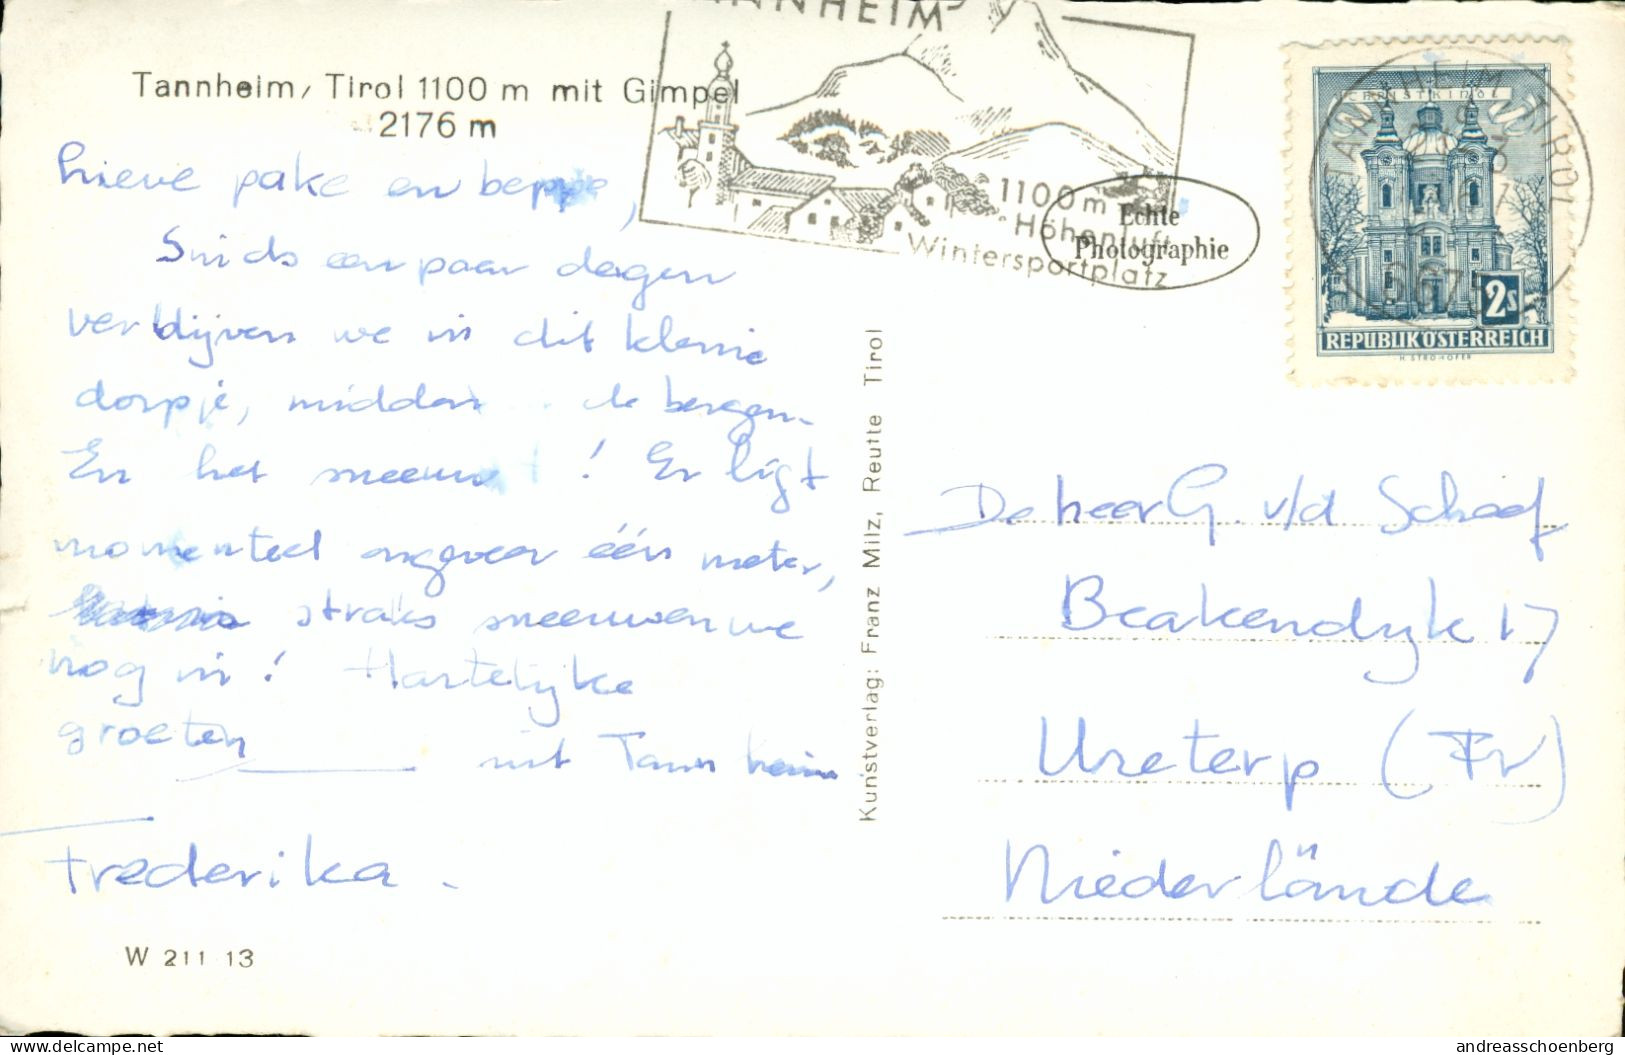 Tannheim, Tirol 1100 m mit Gimpel
2176 m
TANNHEIM
1100 m
Höhenluft
Wintersportplatz
Echte
Photographie
TANNHEIM TIROL
6675
CHRISTKINDL
2S
REPUBLIK ÖSTERREICH
H. STROHOFER
lieve pake en beppe,
Sinds een paar dagen
verblijven we in dit kleine
dorpje, midden de bergen.
En het sneeuwt! Er ligt
momenteel ongeveer één meter,
straks sneeuwen we
nog in! Hartelijke
groeten uit Tannheim
Frederika.
W 211 13
Kunstverlag: Franz Milz, Reutte Tirol
De heer G. v/d Schaaf
Beakendyk 17
Ureterp (Fr)
Niederlände
delcampe.net
andreasschoenberg